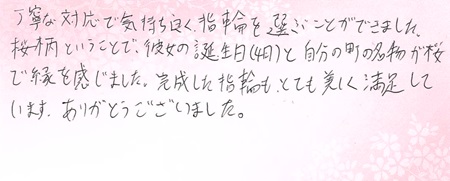 丁寧な対応で気持ち良く、指輪を選ぶことができました。
桜柄ということで、彼女の誕生日(4日)と自分の町の名物が桜
で縁を感じました。完成した指輪も、とても美しく満足して
います。ありがとうございました。